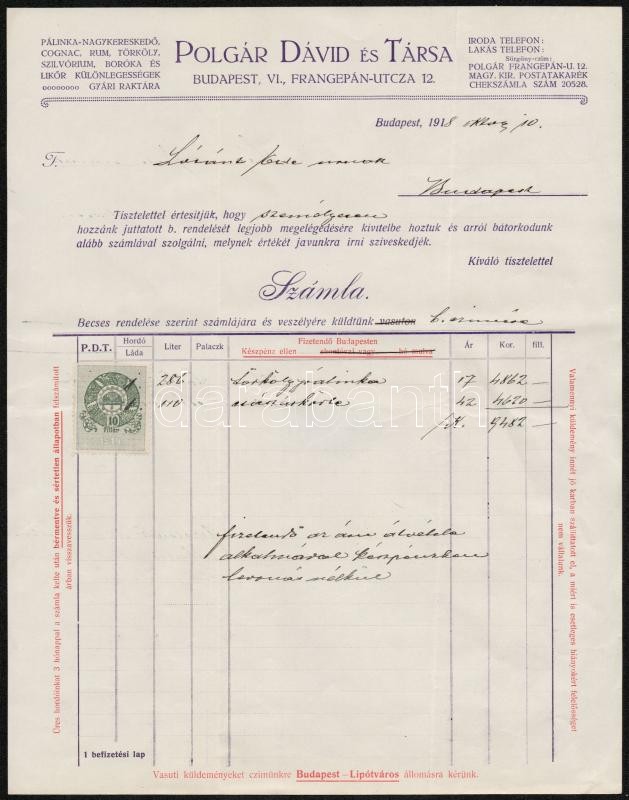 PÁLINKA-NAGYKERESKEDŐ,
COGNAC, RUM, TÖRKÖLY,
SZILVÓRIUM, BORÓKA ÉS
LIKŐR KÜLÖNLEGESSÉGEK
GYÁRI RAKTÁRA
POLGÁR DÁVID ÉS TÁRSA
BUDAPEST, VI., FRANGEPÁN-UTCZA 12.
IRODA TELEFON:
LAKÁS TELEFON:
Sürgöny-czim:
POLGÁR FRANGEPÁN-U. 12.
MAGY. KIR. POSTATAKARÉK
CHEKSZÁMLA SZÁM 20528.
Budapest, 1918 10.
T. Lóránt Ede urnak
Budapest
Tisztelettel értesitjük, hogy személyesen
hozzánk juttatott b. rendelését legjobb megelégedésére kivitelbe hoztuk és arról bátorkodunk
alább számlával szolgálni, melynek értékét javunkra irni sziveskedjék.
Kiváló tisztelettel
Számla.
Becses rendelése szerint számlájára és veszélyére küldtünk vasuton b. cimére
P.D.T. Hordó Láda Liter Palaczk Fizetendő Budapesten Ár Kor. fill.
Készpénz ellen skontóval vagy hó mulva
286 Törkölypálinka 17 4862 —
110 42 4620 —
K. 9482 —
10
fillér
fizetendő az áru átvétele
alkalmával készpénzben
levonás nélkül
Üres hordóinkat 3 hónappal a számla kelte után bérmentve és sértetlen állapotban felszámitott
árban visszavesszük.
Valamennyi küldemény innét jó karban szállittatott el, a miért is esetleges hiányokért felelősséget
nem vállalunk.
1 befizetési lap
Vasuti küldeményeket czimünkre Budapest—Lipótváros állomásra kérünk.
darabanth